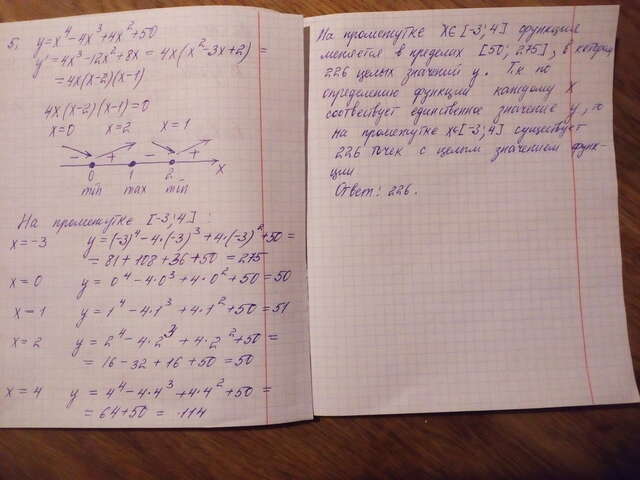 5. y=x⁴-4x³+4x²+50
y'=4x³-12x²+8x = 4x(x²-3x+2) =
=4x(x-2)(x-1)
4x(x-2)(x-1)=0
x=0 x=2 x=1
- + - +
0 1 2 x
min max min
На промежутке [-3;4]:
x=-3 y=(-3)⁴-4·(-3)³+4·(-3)²+50=
=81+108+36+50=275
x=0 y=0⁴-4·0³+4·0²+50=50
x=1 y=1⁴-4·1³+4·1²+50=51
x=2 y=2⁴-4·2³+4·2²+50=
=16-32+16+50=50
x=4 y=4⁴-4·4³+4·4²+50=
=64+50=114
На промежутке x∈[-3;4] функция
меняется в пределах [50; 275], в которых
226 целых значений y. Т.к по
определению функции каждому x
соотвествует единственное значение y, то
на промежутке x∈[-3;4] существует
226 точек с целым значением функ-
ции
Ответ: 226.